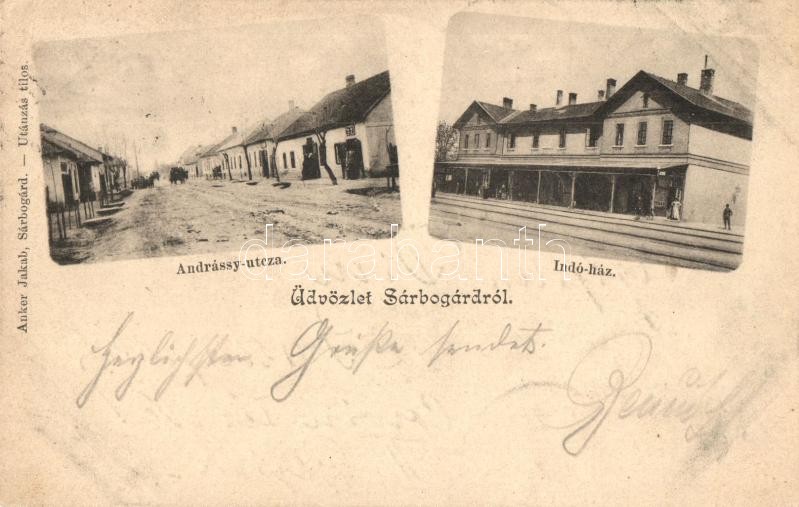 Anker Jakab, Sárbogárd. — Utánzás tilos.
Andrássy-utcza.
Indó-ház.
darabanth
Üdvözlet Sárbogárdról.
Herzlichsten Grüße sendet.